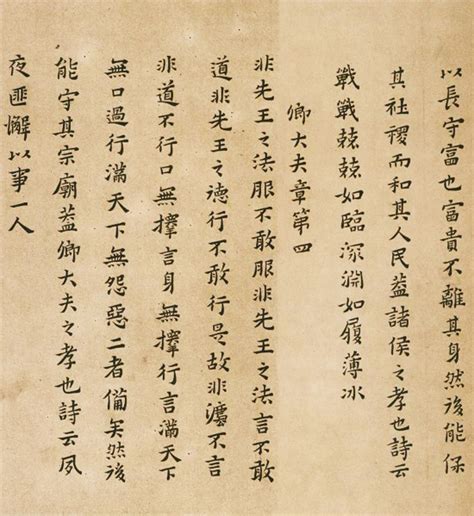 以長守富也富貴不離其身然後能保
其社稷而和其人民蓋諸侯之孝也詩云
戰戰兢兢如臨深淵如履薄冰
卿大夫章第四
非先王之法服不敢服非先王之法言不敢
道非先王之德行不敢行是故非灋不言
非道不行口無擇言身無擇行言滿天下
無口過行滿天下無怨惡二者備矣然後
能守其宗廟蓋卿大夫之孝也詩云夙
夜匪懈以事一人